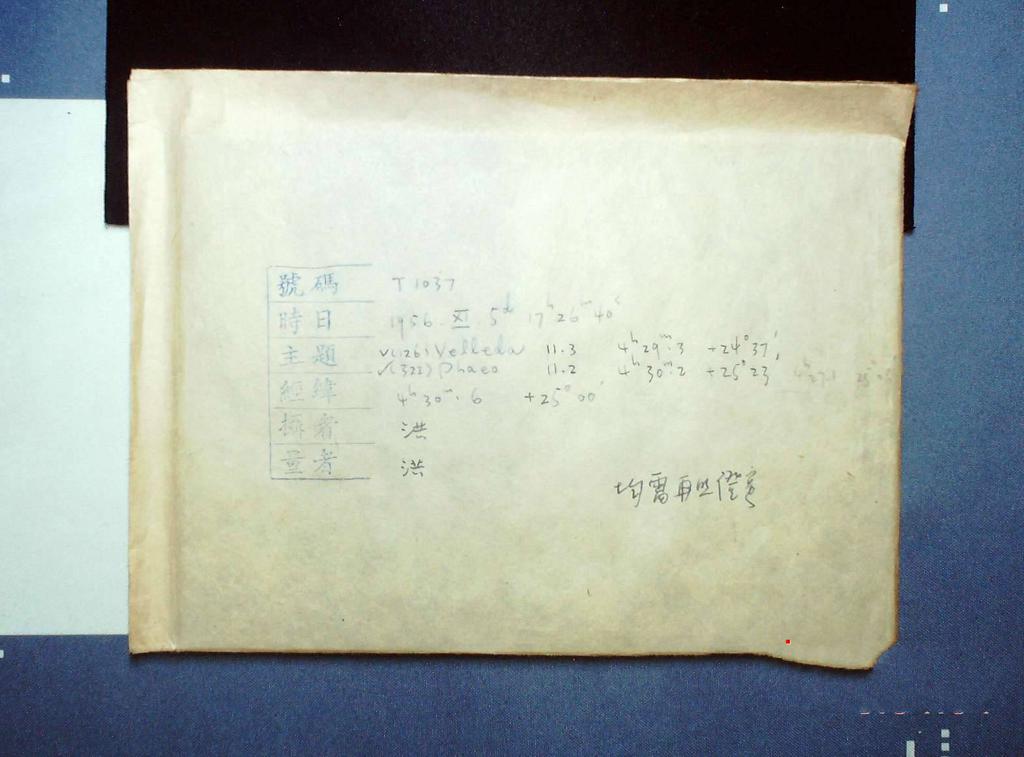 號碼 T 1037
時日 1956. XI. 5ᵈ 17ʰ 26ᵐ 40ˢ
主題 √(126) Velleda 11.3 4ʰ 29ᵐ.3 +24°37′
√(322) Phaeo 11.2 4ʰ 30ᵐ.2 +25°23′
經緯 4ʰ 30ᵐ.6 +25°00′
攝者 洪
量者 洪
均需再照證實